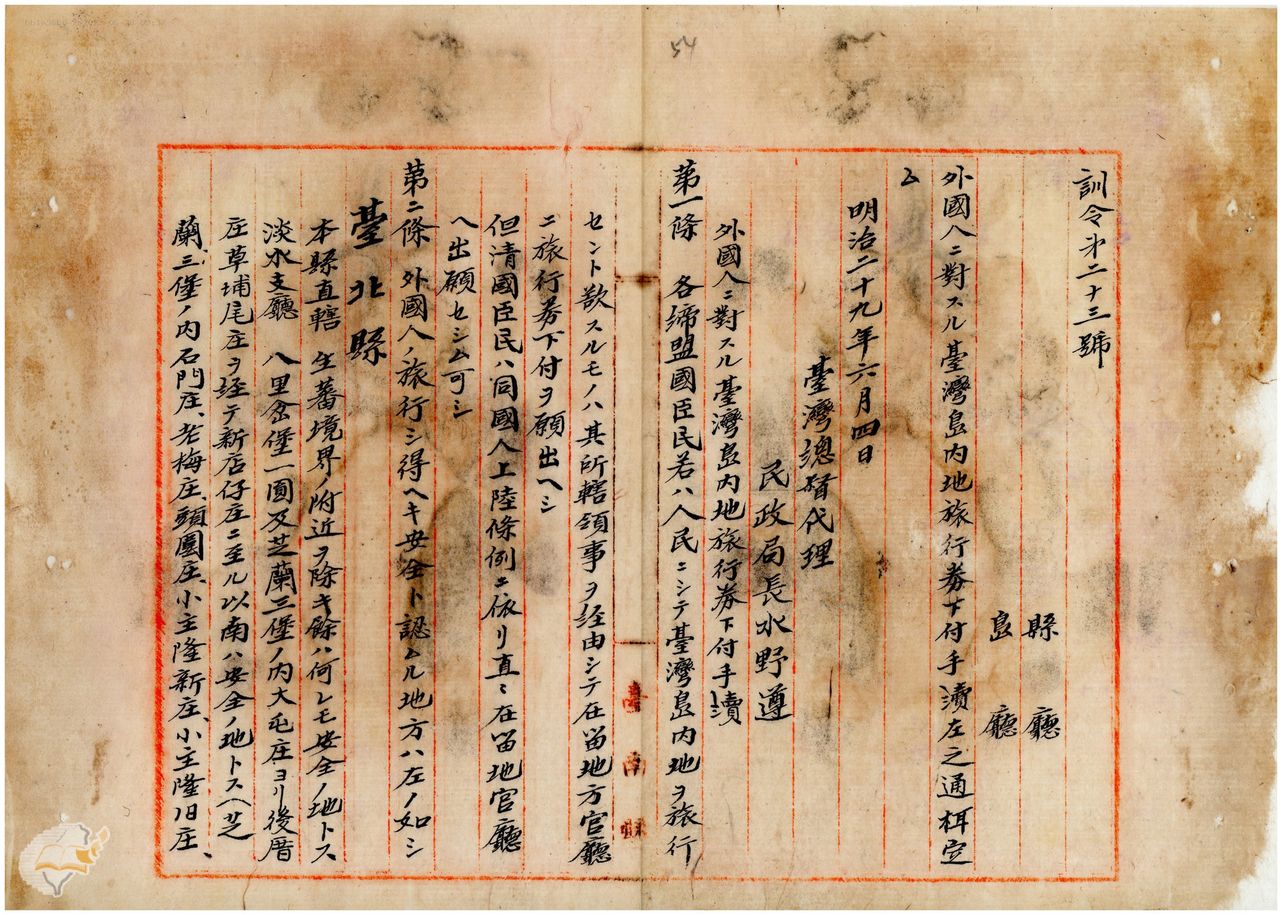 54
訓令才二十三號
縣廳
島廳
外國人ニ對スル臺灣島内地旅行券下付手續左之通相定
ム
明治二十九年六月四日
臺灣總督代理
民政局長水野遵
外國人ニ對スル臺灣島内地旅行券下付手續
第一條 各締盟國臣民若ハ人民ニシテ臺灣島内地ヲ旅行
セント欲スルモノハ其所轄領事ヲ経由シテ在留地方官廳
ニ旅行券下付ヲ願出ヘシ
但清國臣民ハ同國人上陸條例ニ依リ直ニ在留地官廳
ヘ出願セシム可シ
第二條 外國人ノ旅行シ得ヘキ安全ト認ムル地方ハ左ノ如シ
臺北縣
本縣直轄 生蕃境界ノ附近ヲ除キ餘ハ何レモ安全ノ地トス
淡水支廳 八里坌堡一圓及芝蘭三堡ノ内大屯庄ヨリ後厝
庄草埔尾庄ヲ経テ新店仔庄ニ至ル以南ハ安全ノ地トス（芝
蘭三堡ノ内石門庄、老梅庄、頭圍庄、小圭隆新庄、小圭隆旧庄、
臺南縣